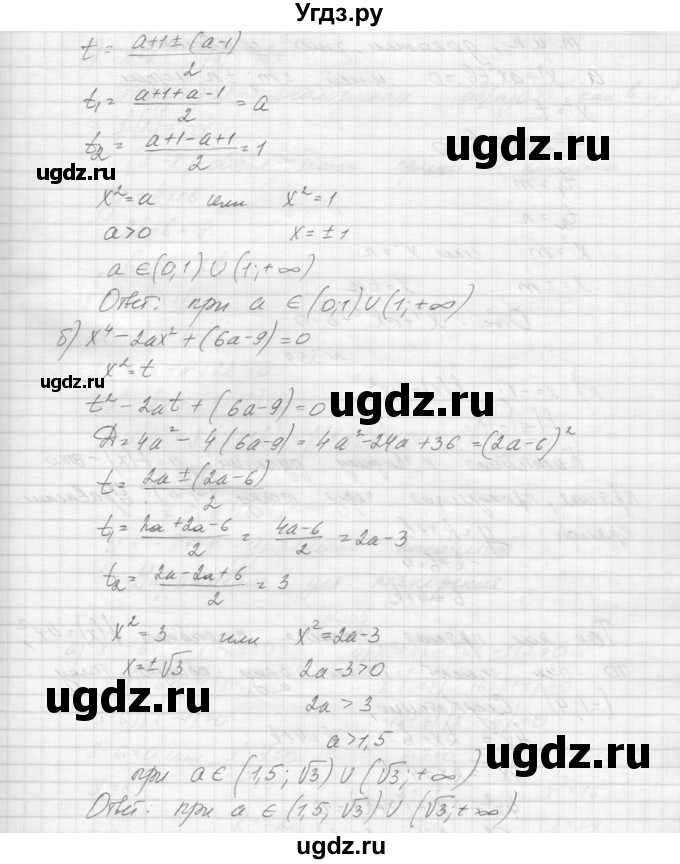 Угдз.ру
t = (a+1±(a-1))/2
t₁ = (a+1+a-1)/2 = a
t₂ = (a+1-a+1)/2 = 1
ugdz.ru
ugdz.ru
ugdz.ru
x² = a или x² = 1
a>0 x = ±1
a ∈ (0;1) ∪ (1;+∞)
Ответ: при a ∈ (0;1) ∪ (1;+∞)
б) x⁴ - 2ax² + (6a-9) = 0
x² = t
t² - 2at + (6a-9) = 0
ugdz.ru
Д = 4a² - 4(6a-9) = 4a² - 24a + 36 = (2a-6)²
t = (2a ± (2a-6))/2
t₁ = (2a+2a-6)/2 = (4a-6)/2 = 2a-3
t₂ = (2a-2a+6)/2 = 3
x² = 3 или x² = 2a-3
x = ±√3 2a-3>0
ugdz.ru
2a > 3
ugdz.ru
a > 1,5
при a ∈ (1,5; √3) ∪ (√3; +∞)
Ответ: при a ∈ (1,5; √3) ∪ (√3; +∞)
ugdz.ru